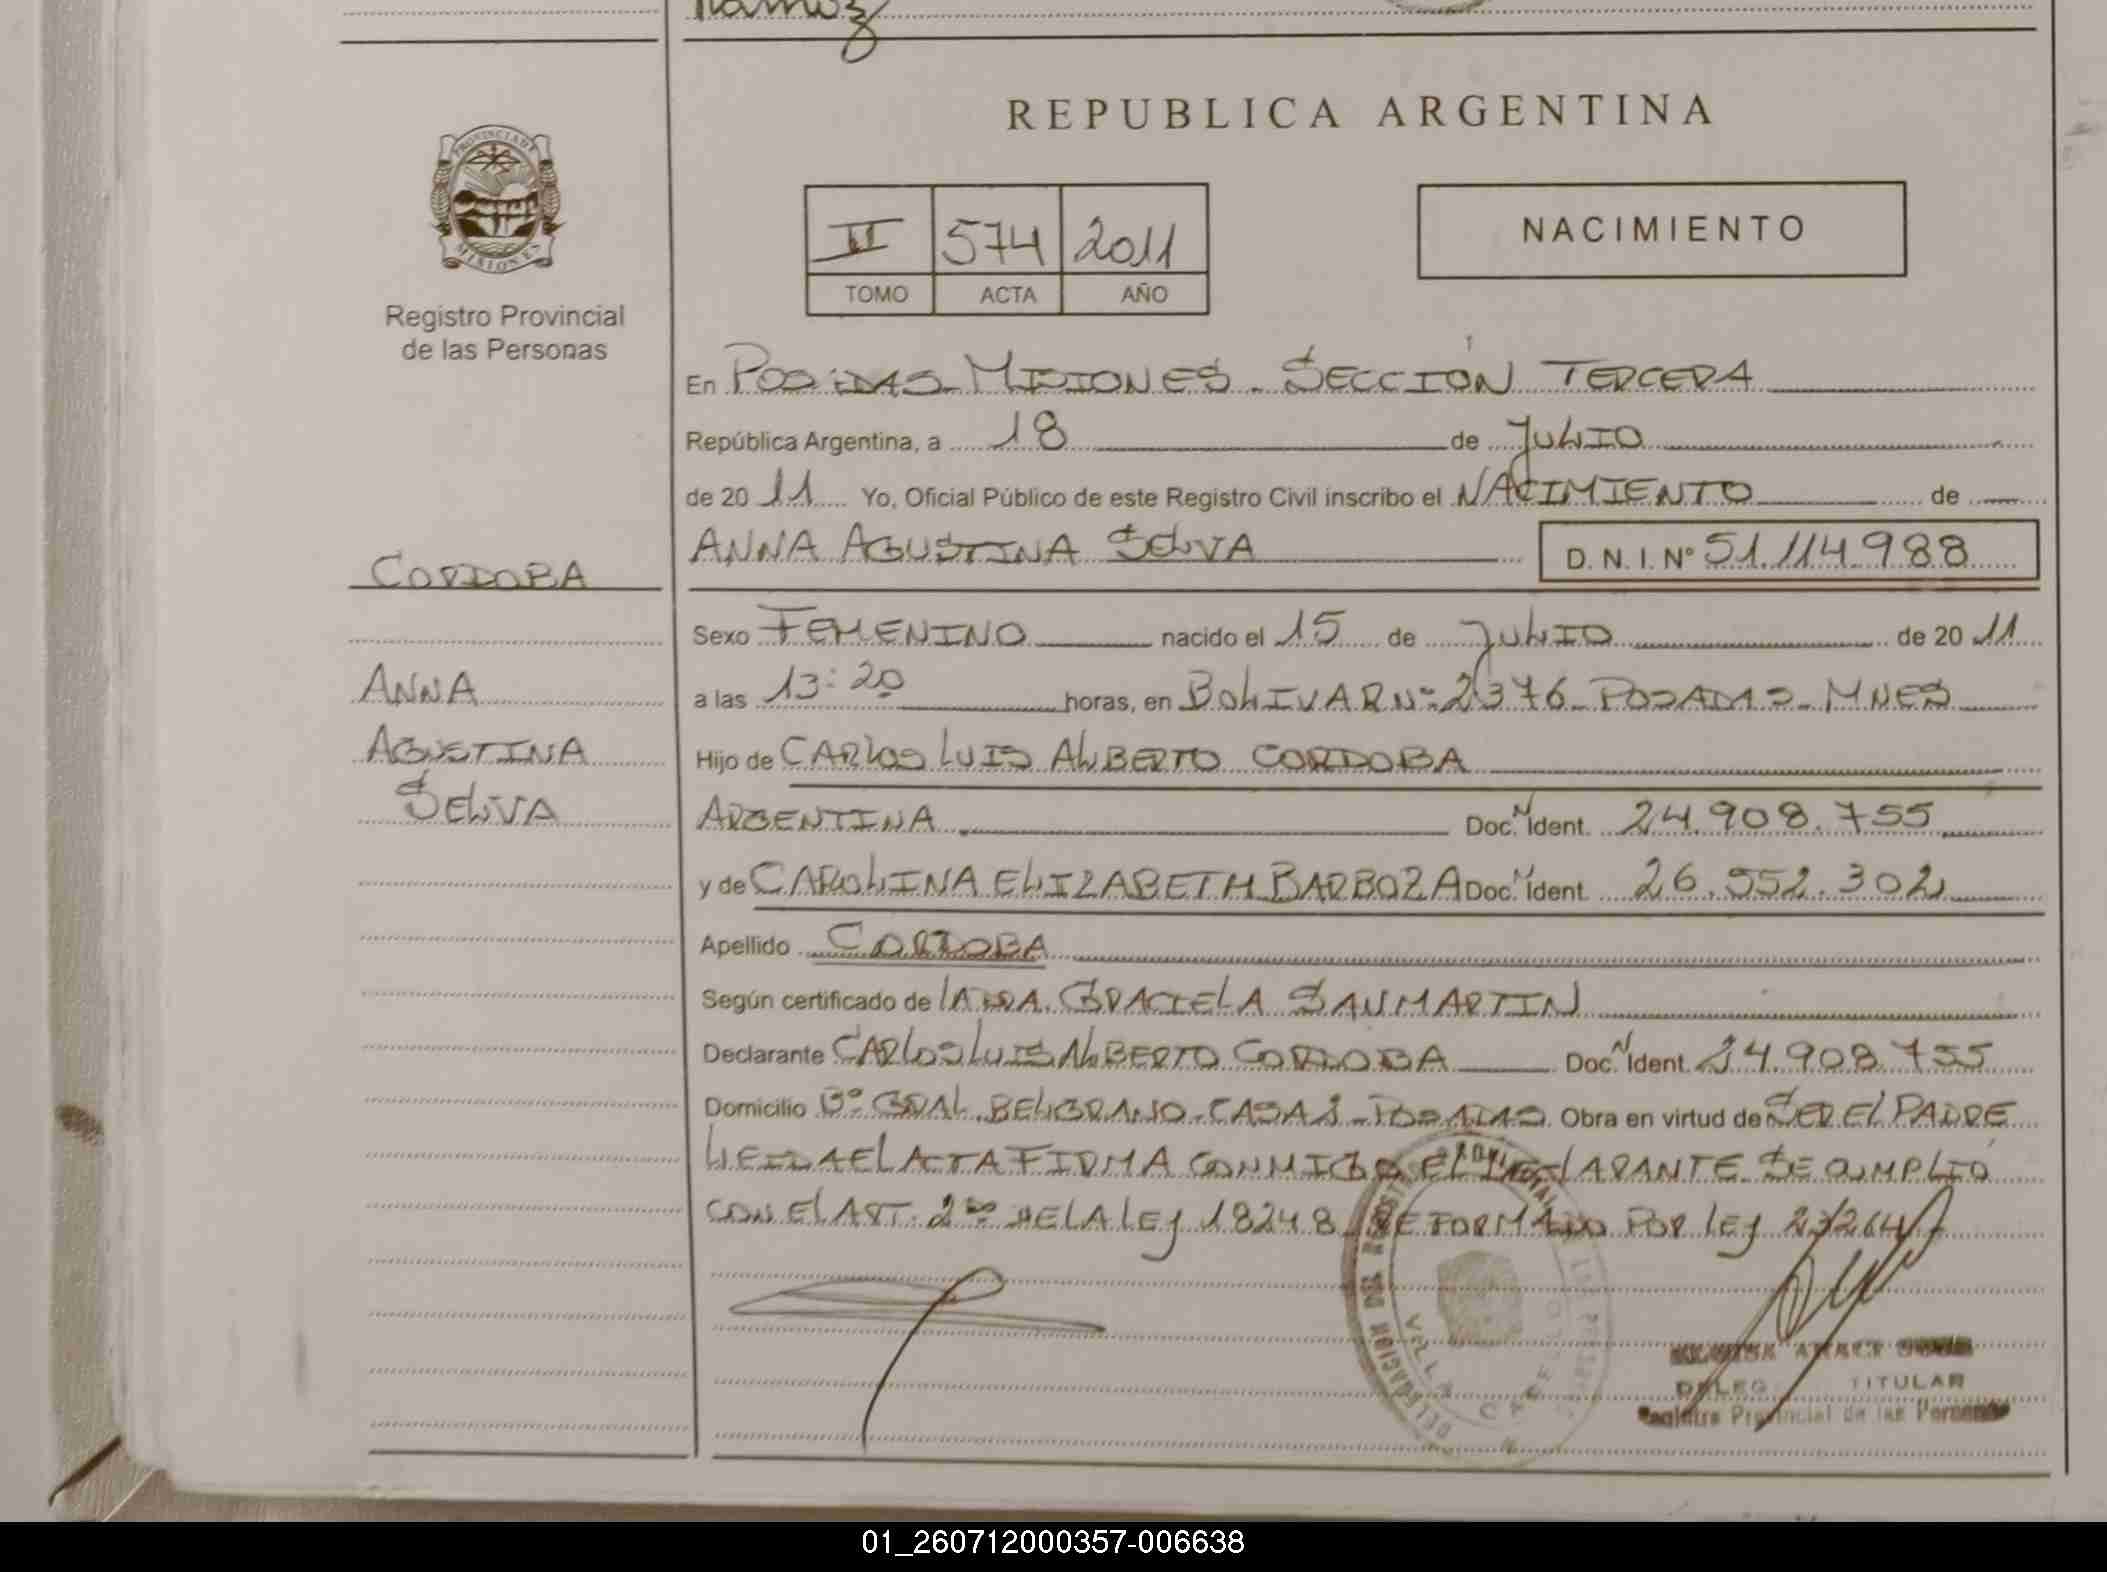 Ramirez
PROVINCIA DE
MISIONES
Registro Provincial
de las Personas
REPUBLICA ARGENTINA
II 574 2011
TOMO ACTA AÑO
NACIMIENTO
En POSADAS MISIONES - SECCIÓN TERCERA
República Argentina, a 18 de JULIO
de 20 11 Yo, Oficial Público de este Registro Civil inscribo el NACIMIENTO de
ANNA AGUSTINA SELVA D. N. I. Nº 51.114.988
CORDOBA
Sexo FEMENINO nacido el 15 de JULIO de 20 11
ANNA
a las 13:20 horas, en BOLIVAR Nº: 2376 - POSADAS - MNES
AGUSTINA
Hijo de CARLOS LUIS ALBERTO CORDOBA
SELVA
ARGENTINA Doc. N Ident. 24.908.755
y de CAROLINA ELIZABETH BARBOZA Doc. N Ident. 26.552.302
Apellido CORDOBA
Según certificado de LA DRA. GRACIELA SANMARTIN
Declarante CARLOS LUIS ALBERTO CORDOBA Doc. N Ident. 24.908.755
Domicilio Bº GRAL. BELGRANO - CASA - POSADAS. Obra en virtud de SER EL PADRE
LEIDA EL ACTA FIRMA CONMIGO EL DECLARANTE. SE CUMPLIÓ
CON EL ART. 2do DE LA LEY 18248 REFORMADO POR LEY 23264
DELEGACION DEL REGISTRO PROVINCIAL DE LAS PERSONAS
VILLA CABELLO
DELEG. TITULAR
Registro Provincial de las Personas
01_260712000357-006638